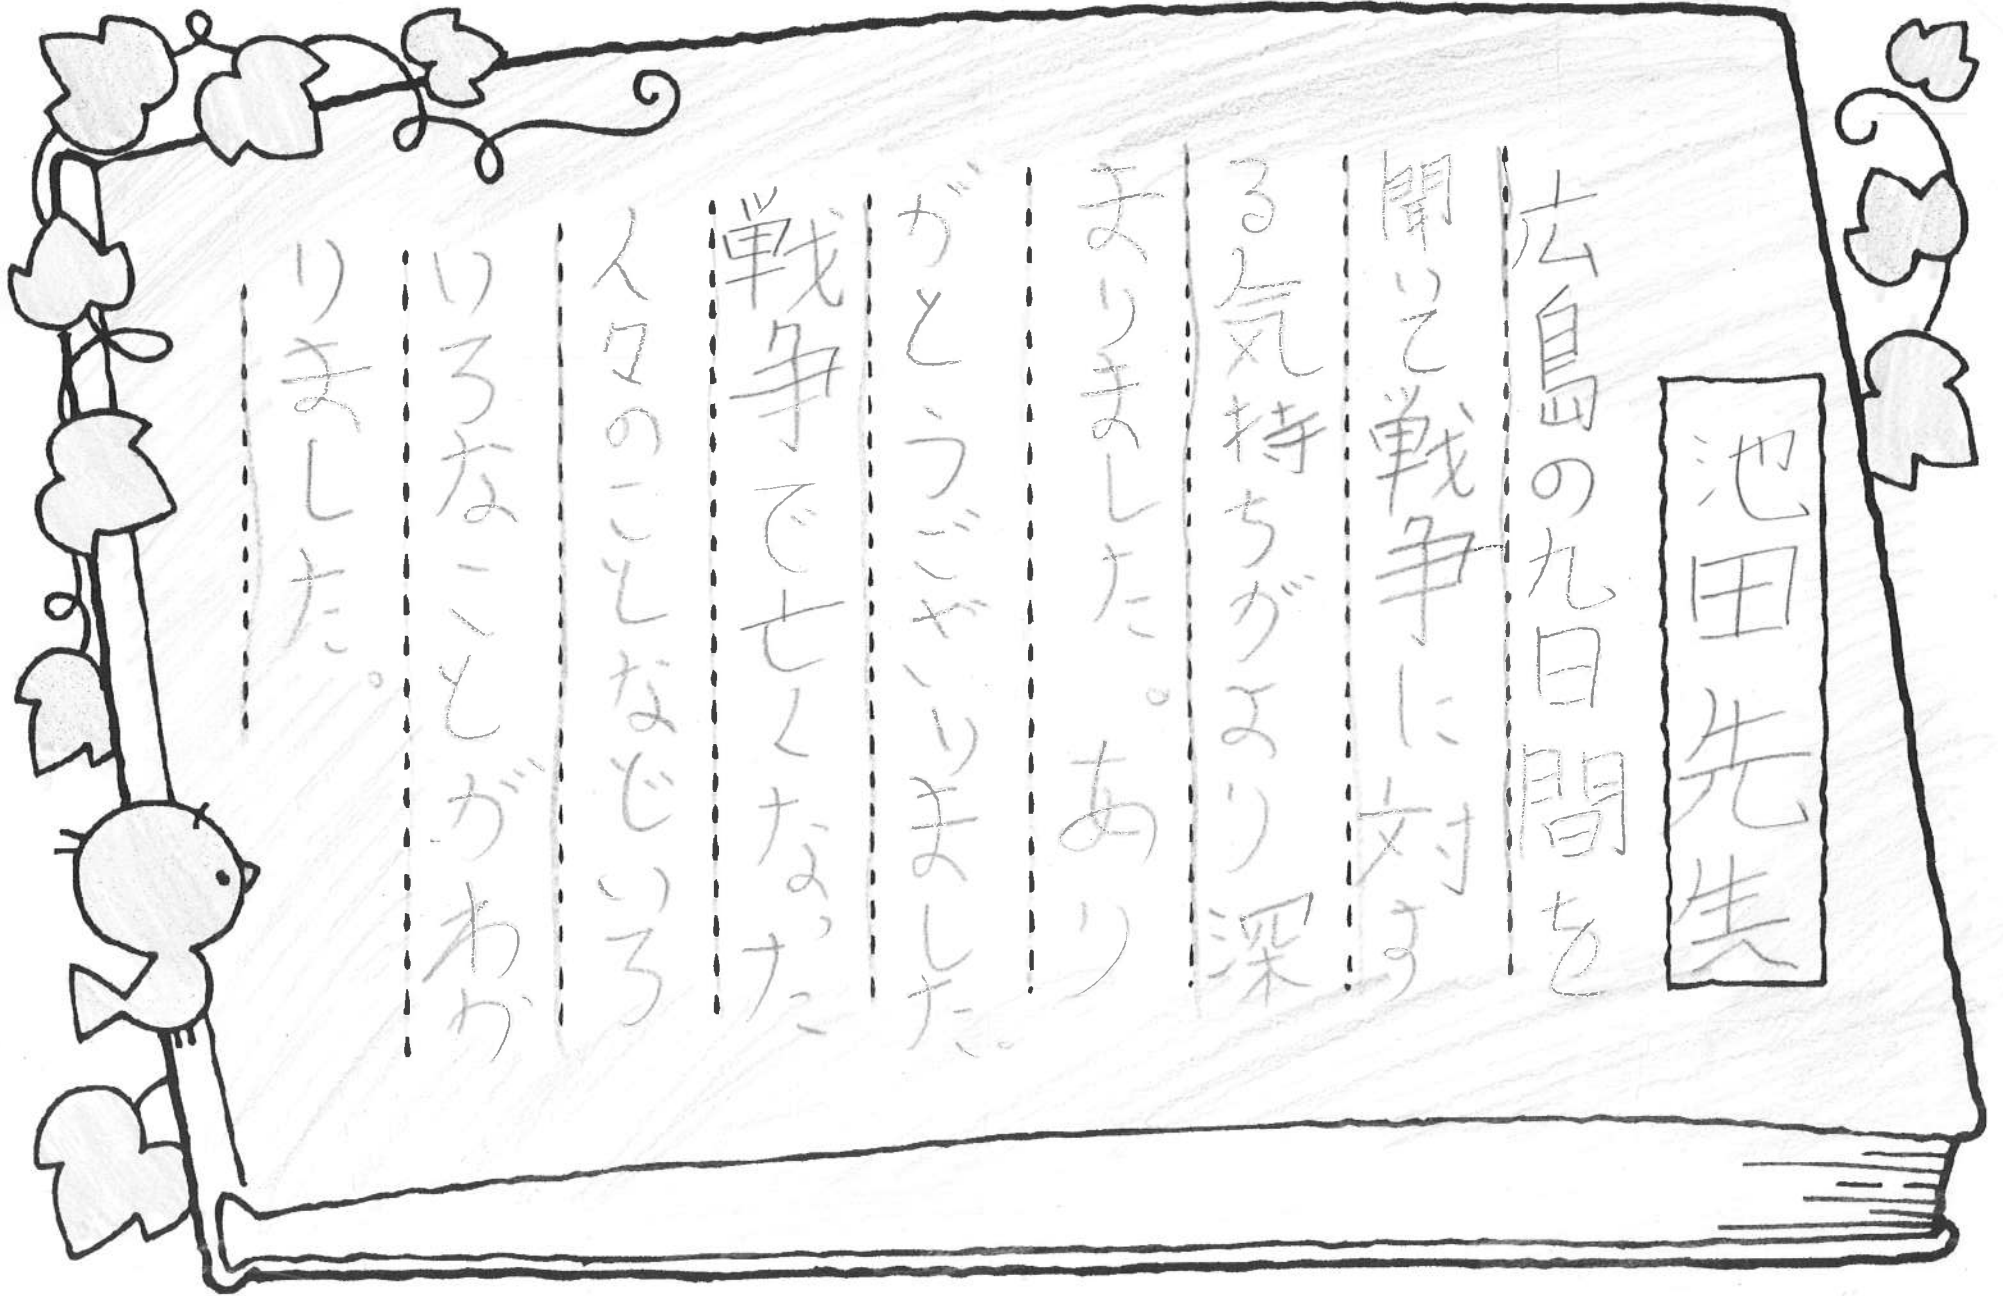 池田先生
広島の九日間を
聞いて戦争に対す
る気持ちがより深
まりました。あり
がとうございました。
戦争で亡くなった
人々のことなどいろ
いろなことがわか
りました。